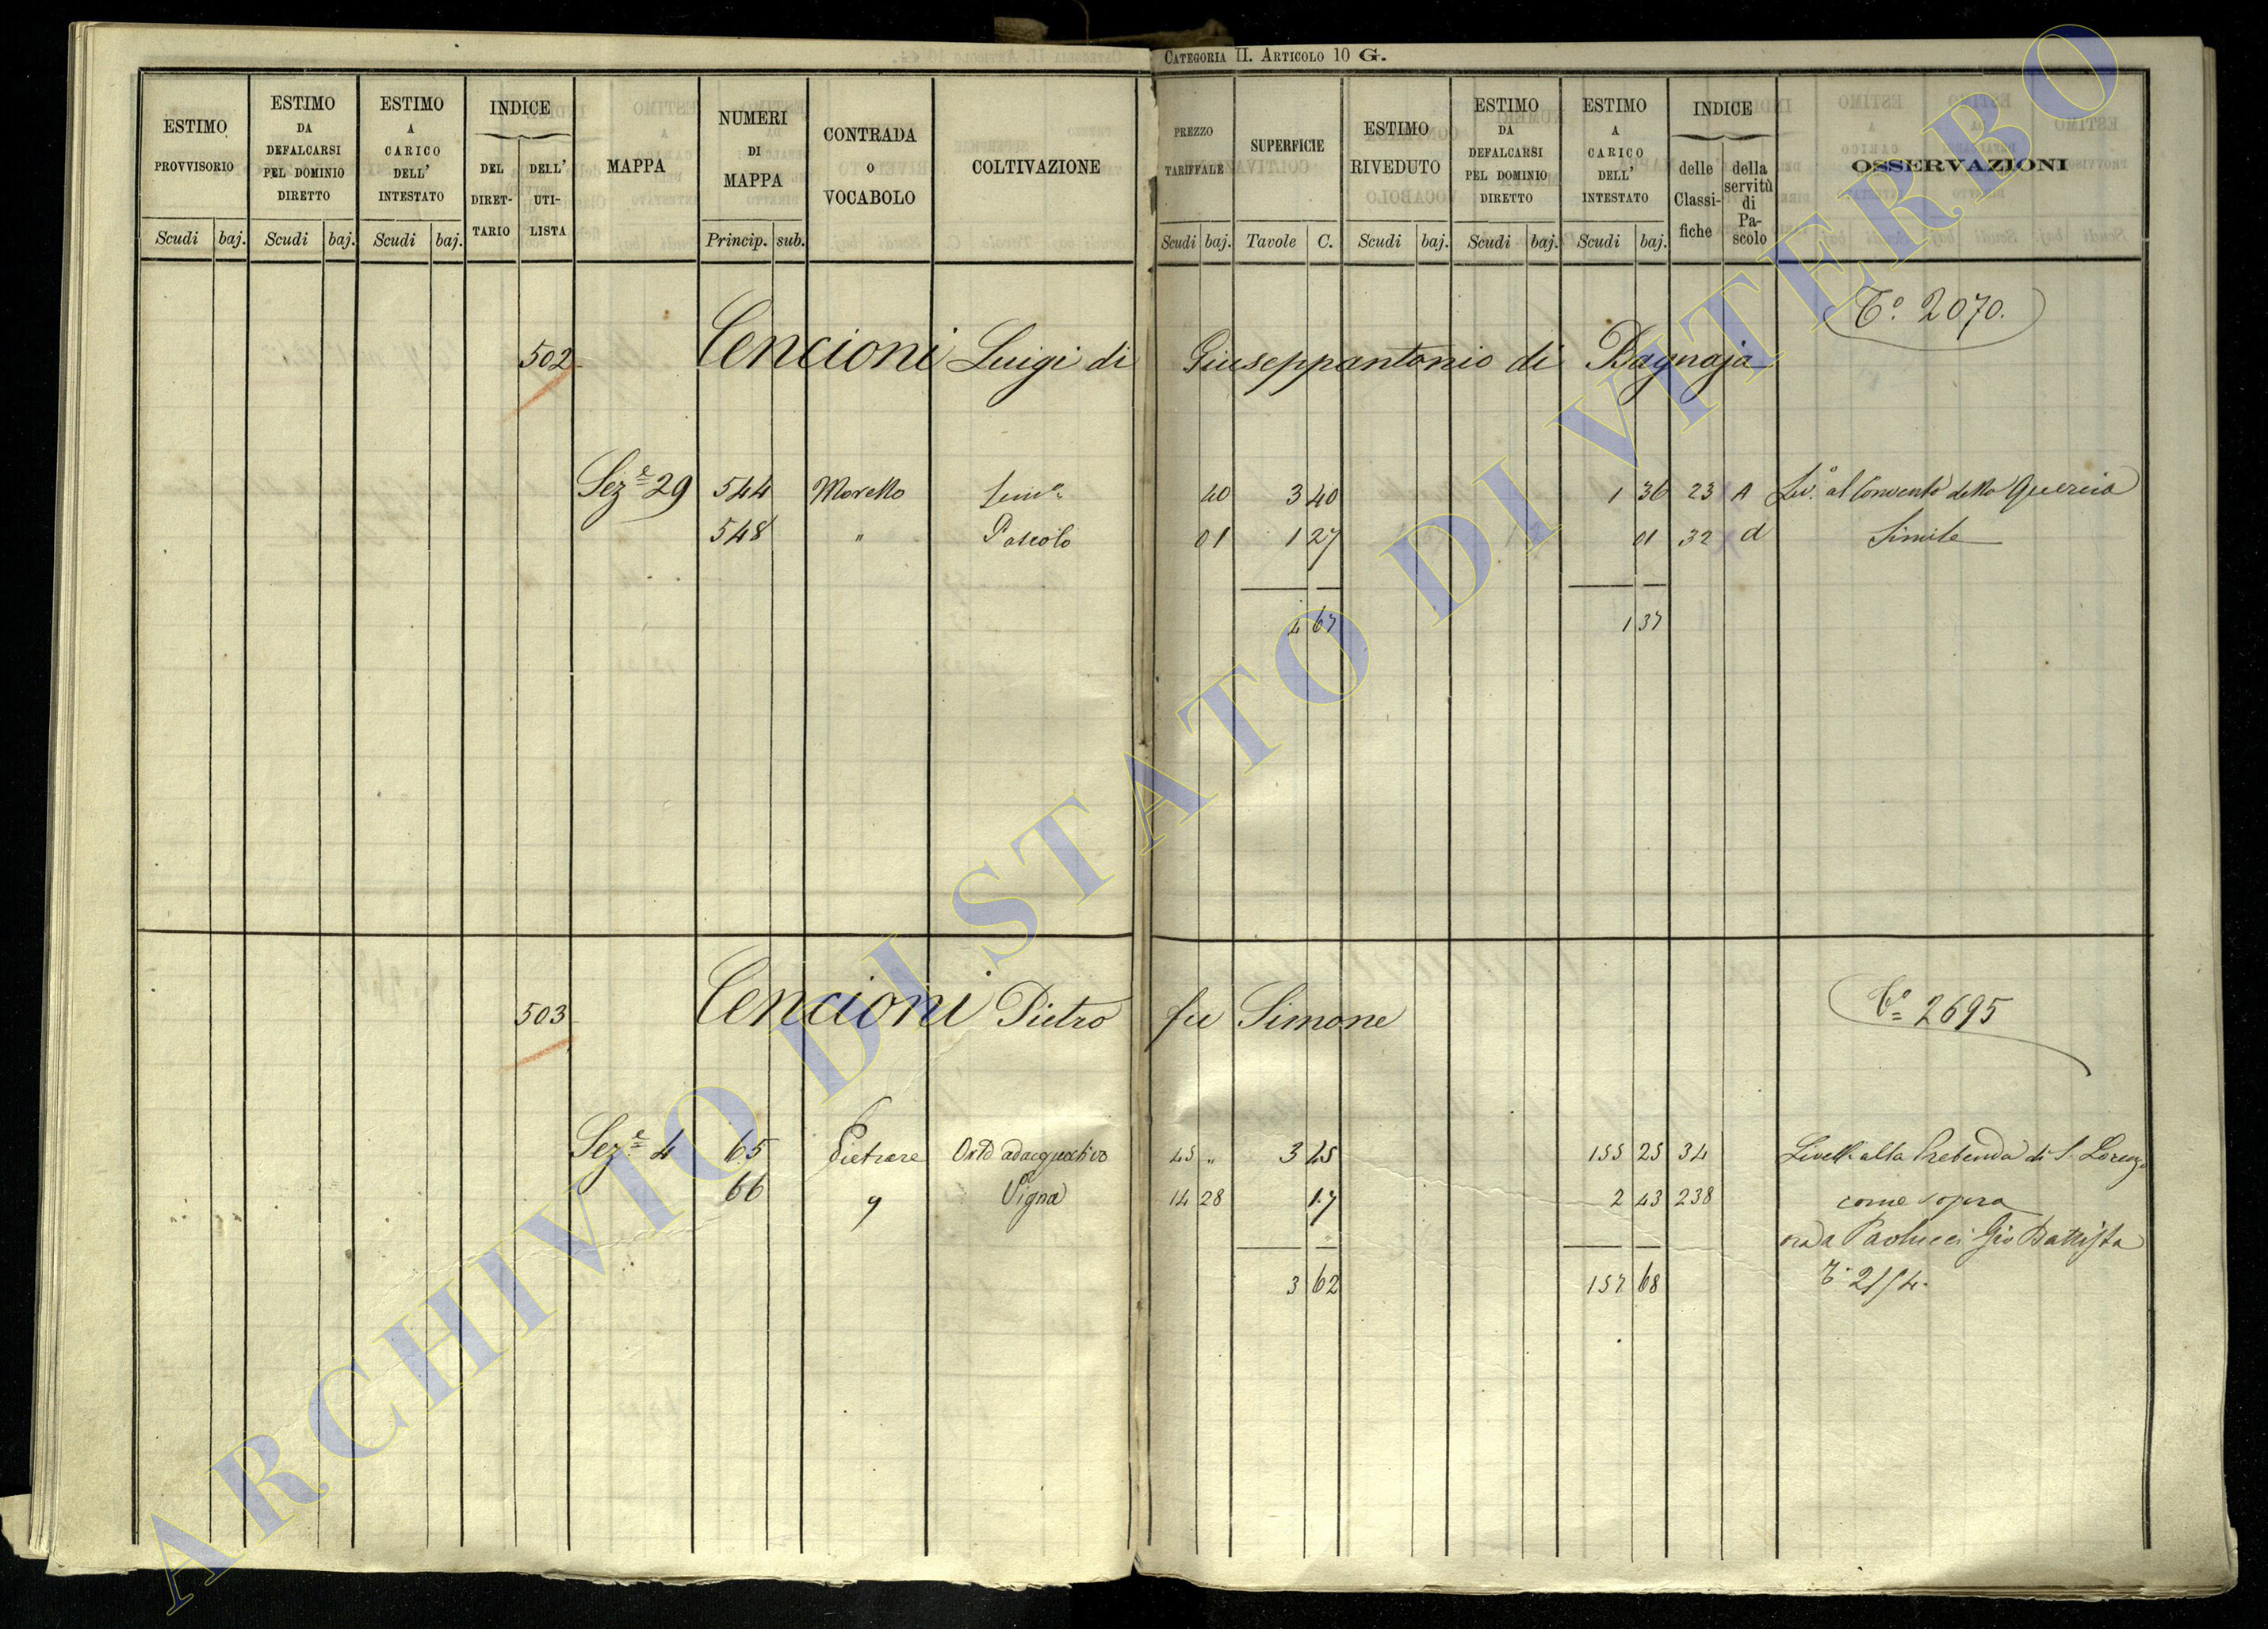 CATEGORIA II. ARTICOLO 10 G.
ESTIMO PROVVISORIO
ESTIMO DA DEFALCARSI PEL DOMINIO DIRETTO
ESTIMO A CARICO DELL' INTESTATO
INDICE
DEL DIRET-TARIO
DELL' UTI-LISTA
MAPPA
NUMERI DI MAPPA
CONTRADA O VOCABOLO
COLTIVAZIONE
PREZZO TARIFFALE
SUPERFICIE
ESTIMO RIVEDUTO
ESTIMO DA DEFALCARSI PEL DOMINIO DIRETTO
ESTIMO A CARICO DELL' INTESTATO
INDICE
delle Classi-fiche
della servitù di Pa-scolo
OSSERVAZIONI
Scudi baj. Scudi baj. Scudi baj. Princip. sub. Scudi baj. Tavole C. Scudi baj. Scudi baj. Scudi baj.
Tº. 2070.
502 Cencioni Luigi di Giuseppantonio di Bagnaja
Sez.e 29 544 Morello Sem.o 40 3 40 1 36 23 A Liv.º al Convento della Quercia
548 " Pascolo 01 1 27 01 32 d Simile
4 67 1 37
503 Cencioni Pietro fu Simone
Tº 2695
Sez.e 4 65 Pietrare Orto adacquativo 45 " 3 45 155 25 34 Livell. alla Prebenda di S. Lorenzo
66 " Vigna 14 28 17 2 43 238 come sopra
ora a Paolucci Gio Battista
3 62 157 68 Tº 2154.
ARCHIVIO DI STATO DI VITERBO